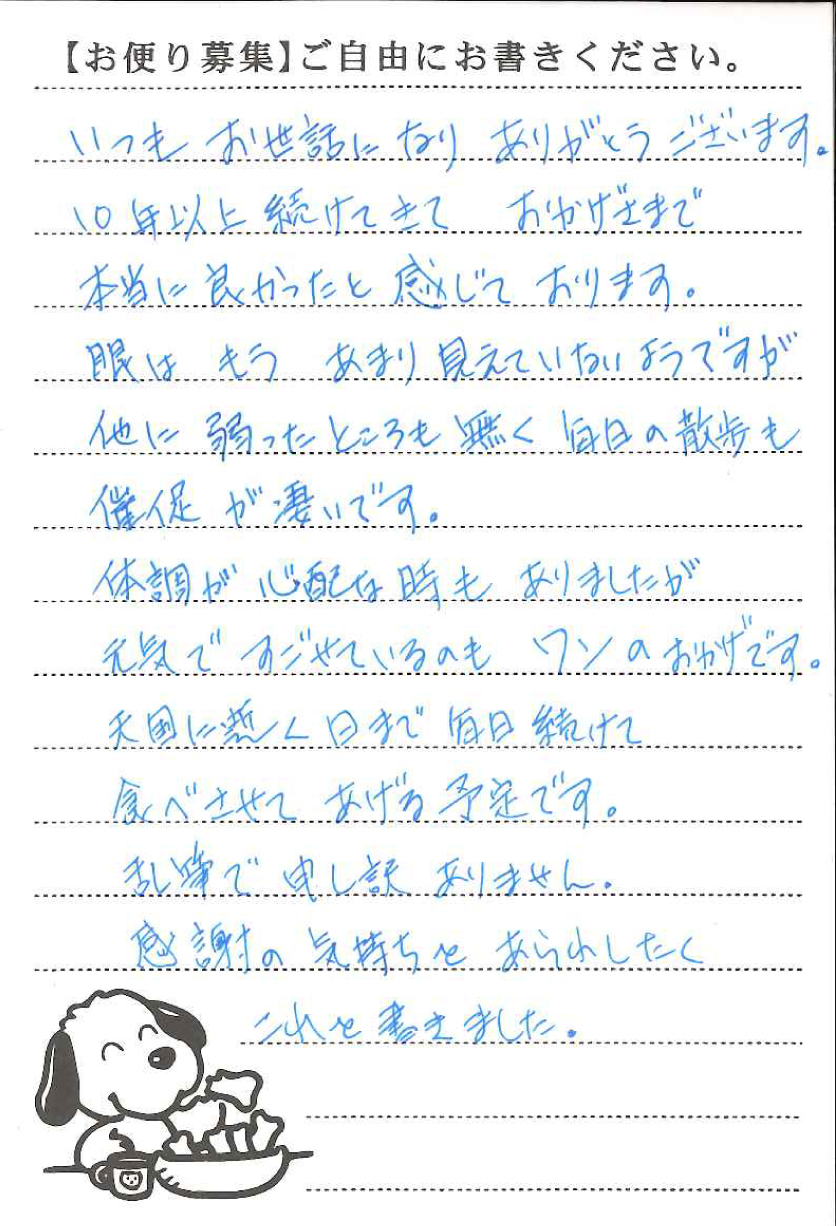 【お便り募集】ご自由にお書きください。
いつも お世話に なり ありがとう ございます。
10年以上 続けてきて おかげさまで
本当に 良かったと 感じて おります。
眼は もう あまり 見えていないようですが
他に 弱ったところも 無く 毎日の 散歩も
催促 が 凄いです。
体調が 心配な 時も ありましたが
元気で すごせているのも ワンの おかげです。
天国に 逝く 日まで 毎日 続けて
食べさせて あげる 予定です。
乱筆で 申し訳 ありません。
感謝の 気持ちを あらわしたく
これを 書きました。